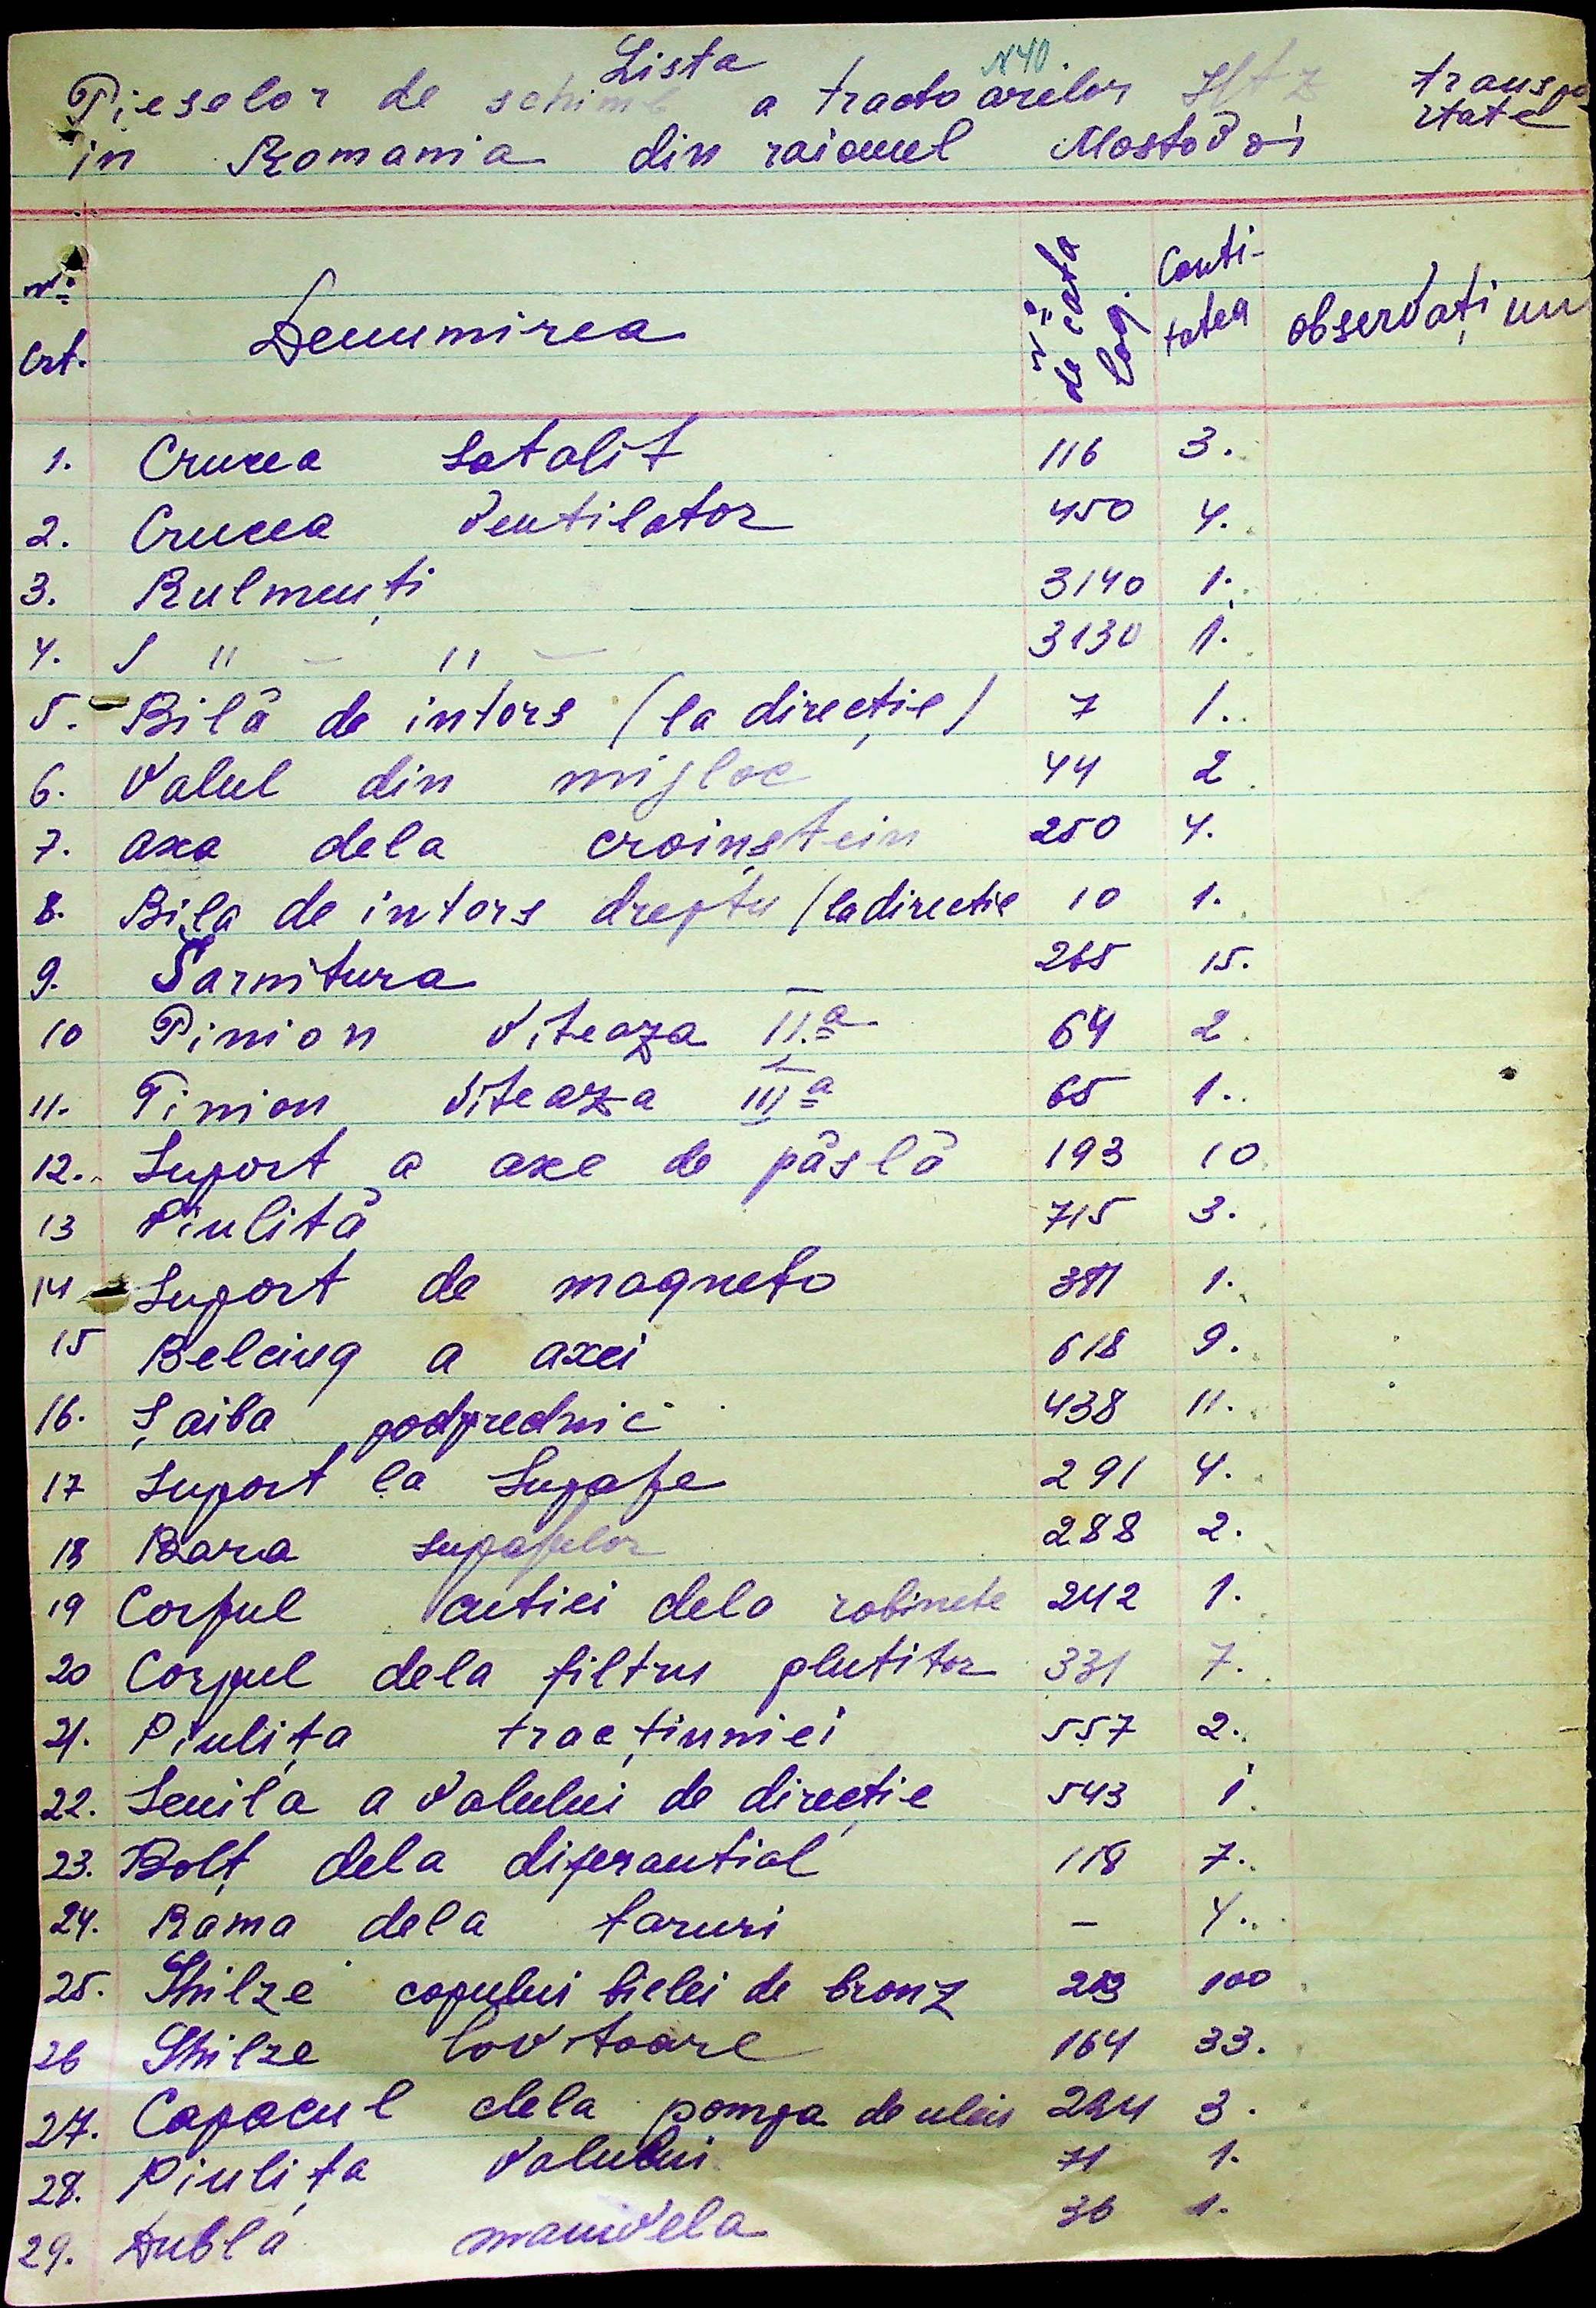 Lista
N40
Pieselor de schimb a tractoarelor Htz transpo
rtate
in Romania din raionul Mostovoi
Nº Crt. Denumirea Nº de catalog. Cantitatea observațiuni
1. Crucea Satalit 116 3.
2. Crucea Ventilator 450 4.
3. Rulmenți 3140 1.
4. " — " — 3130 1.
5. Bilă de intors (la direcție) 7 1.
6. Valul din mijloc 44 2.
7. axa dela croinștein 250 4.
8. Bila de intors dreptu (la directie 10 1.
9. Sarnitura 265 15.
10 Pinion Viteaza II.a 64 2.
11. Pinion Viteaza III a 65 1.
12. Suport a axe de pâslă 193 10.
13 Piulită 715 3.
14 Suport de magneto 1.
15 Belciug a axei 618 9.
16. Șaiba podprednic 438 11.
17 Suport la Supape 291 4.
18 Bara supapelor 288 2.
19 Corpul cutiei dela robinete 242 1.
20 Corpul dela filtru plutitor 331 7.
21. Piulița tracțiuniei 557 2.
22. Senila a Valului de direcție 543 1.
23. Bolț dela diferantial 118 7.
24. Rama dela faruri – 4.
25. Shilze capului bielei de bronz 100
26 Shilze lovitoare 164 33.
27. Capacul dela pompa de uleiu 3.
28. Piulița Valului 71 1.
29. Dublă manivela 36 1.